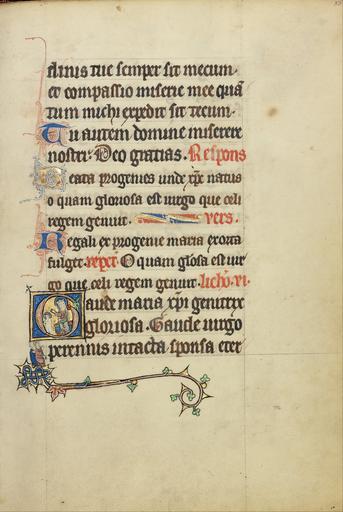 flinis tue semper sit mecum
et compassio miserie mee quā
tum michi expedit sit tecum.
Tu autem domine miserere
nostri. Deo gratias. Respons
Beata progenies unde xp̄c natus
o quam gloriosa est uirgo que celi
regem genuit. vers.
Regali ex progenie maria exorta
fulget. repet̄. O quam gl̄osa est uir
go que celi regem genuit. lichō. vi.
Gaude maria xp̄i genitrix
gloriosa. Gaude uirgo
perennius intacta sponsa eter